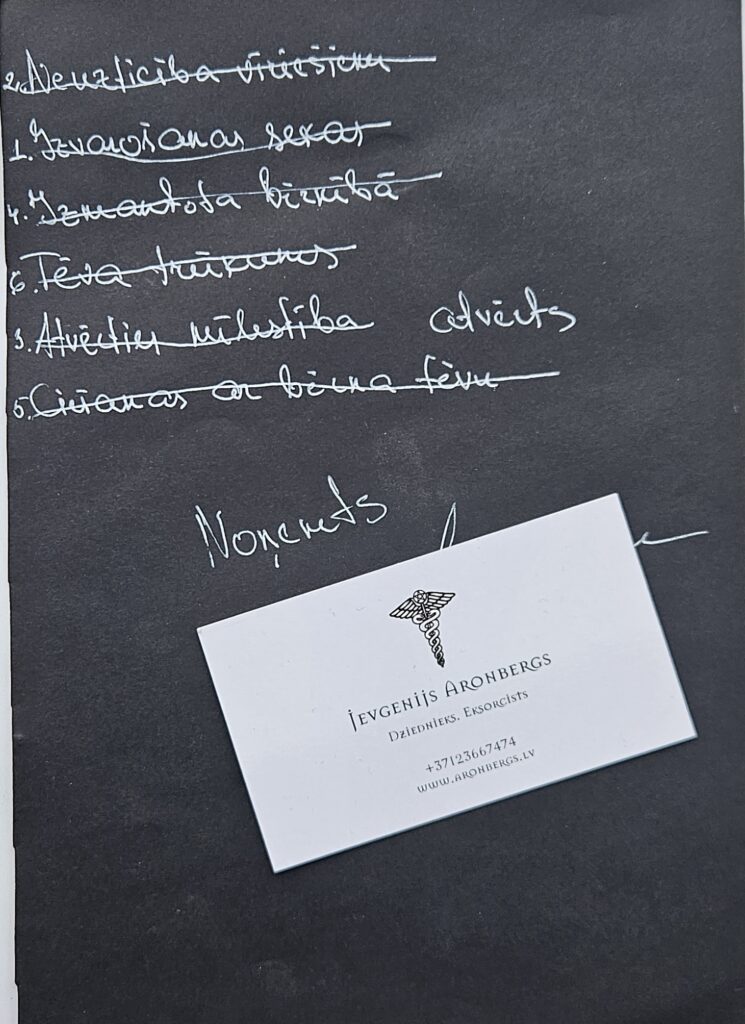 2. Neuzticība vīriešiem
1. Izvarošanas sekas
4. Izmantota bērnībā
6. Tēva trūkums
3. Atvērties mīlestība atvērts
5. Ciešanas ar bērna tēvu
Noņemts
JEVGENIJS ARONBERGS
DZIEDNIEKS. EKSORCISTS
+37123667474
WWW.ARONBERGS.LV